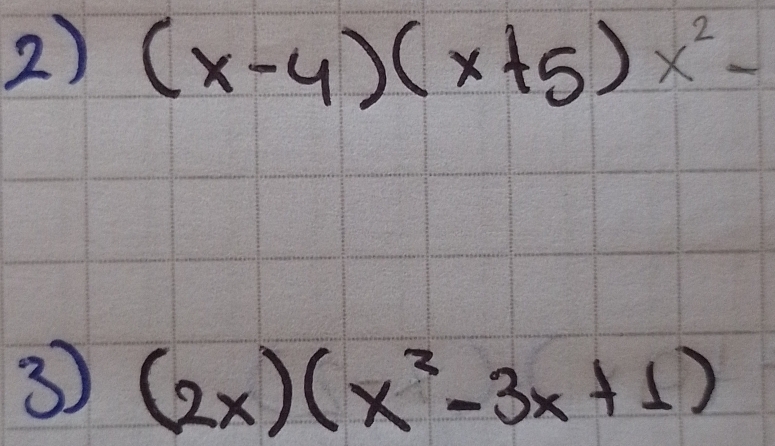 2) (x-4)(x+5) x² -
3) (2x)(x²-3x+1)